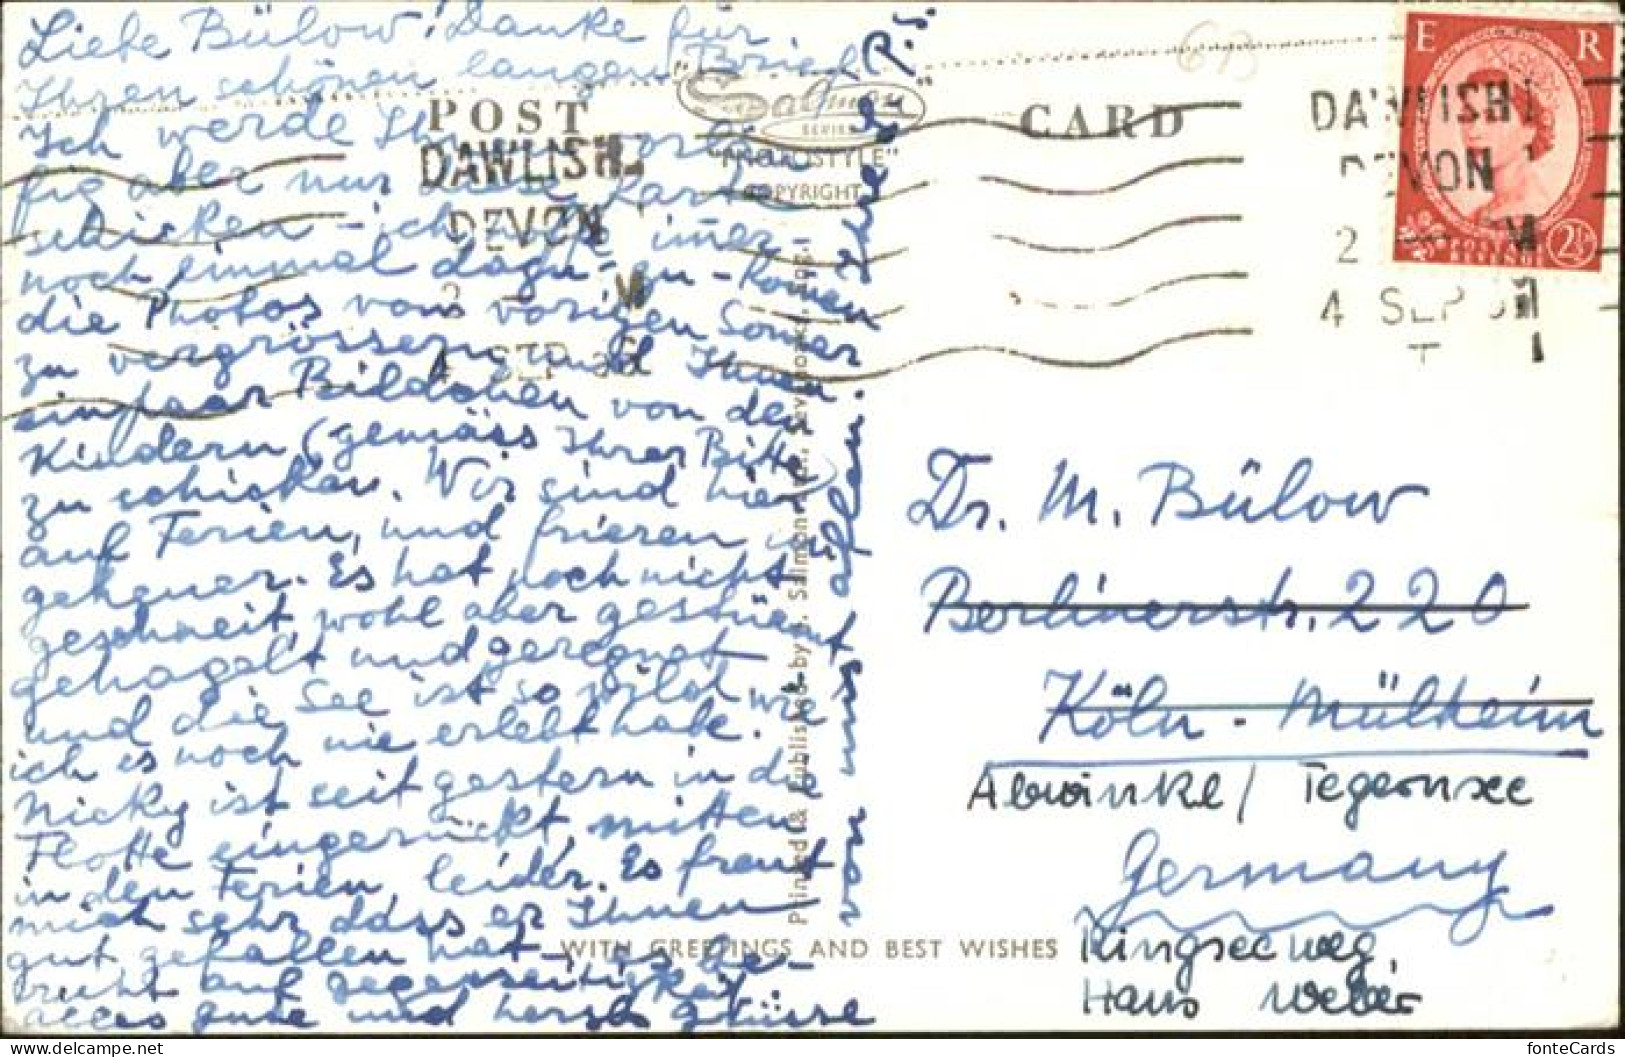 Liebe Bülow! Danke für
Ihren schönen langen Brief
Ich werde Ihnen vorläu
fig aber nur diese Karte
schicken – ich hoffe imer
noch einmal dazu-zu-komen
die Photos vom vorigen Somer
zu vergrössern und Ihnen
ein paar Bildchen von den
Kindern (gemäss Ihrer Bitte)
zu schicken. Wir sind hier
auf Ferien, und frieren un
geheuer. Es hat noch nicht
geschneit, wohl aber gestürmt
gehagelt und geregnet –
und die See ist so wild wie
ich es noch nie erlebt habe.
Nicky ist seit gestern in die
Flotte eingerückt, mitten
in den Ferien, leider. Es freut
mich sehr dass er Ihnen
gut gefallen hat – es be-
ruht auf gegenseitigkeit
alles gute und herzl. Grüsse
von uns allen. Ihre
P.S.
POST CARD
Salmon
SERIES
"PHOTOSTYLE"
COPYRIGHT
Printed & Published by J. Salmon Ltd., Sevenoaks
WITH GREETINGS AND BEST WISHES
DAWLISH
DEVON
4 SEP
DAWLISH
DEVON
2
4 SEP
E R
POSTAGE REVENUE
2½D
Dr. M. Bülow
Berlinerstr. 220
Köln - Mülheim
Abwinkl / Tegernsee
Germany
Ringseeweg,
Haus Weber
fonteCards